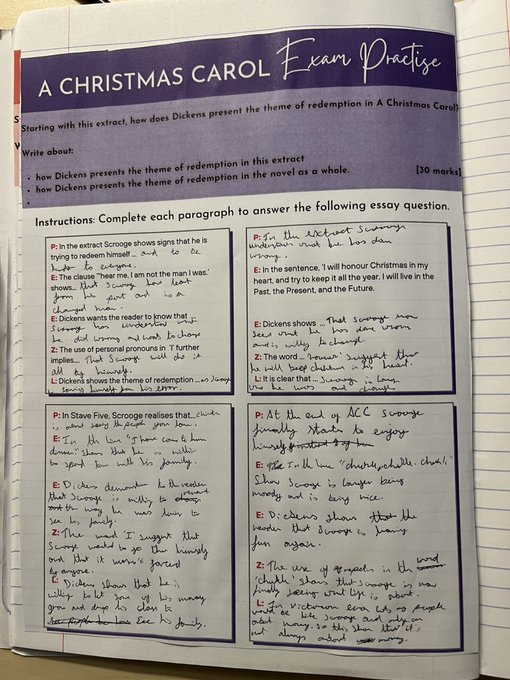 A CHRISTMAS CAROL Exam Practise
Starting with this extract, how does Dickens present the theme of redemption in A Christmas Carol?
Write about:
• how Dickens presents the theme of redemption in this extract
• how Dickens presents the theme of redemption in the novel as a whole. [30 marks]
Instructions: Complete each paragraph to answer the following essay question.
P: In the extract Scrooge shows signs that he is
trying to redeem himself... and to be
kinder to everyone.
E: The clause "'hear me. I am not the man I was.'
shows... that Scrooge has
from his past and is a
changed man.
E: Dickens wants the reader to know that ...
Scrooge has what
he did wrong and want to change
Z: The use of personal pronouns in 'I' further
implies... That Scrooge will do it
all by himself.
L: Dickens shows the theme of redemption ... as Scrooge
himself from his
P: In the extract Scrooge
understands what he has done
wrong.
E: In the sentence, 'I will honour Christmas in my
heart, and try to keep it all the year. I will live in
the Past, the Present, and the Future.
E: Dickens shows ... That Scrooge now
sees what he has done wrong
and is willing to change.
Z: The word ... 'honour' suggest that
he will keep christmas in his heart.
L: It is clear that ... Scrooge is
who he was and
P: In Stave Five, Scrooge realises that...
is about the people you love.
E: In the line "I have come to
dinner" show that he is willing
to spend time with his family.
E: Dickens to the reader
that Scrooge is willing to
the way he was to
see his family.
Z: The word 'I' suggest that
Scrooge wanted to go there himself
and that it wasn't forced
by anyone.
L: Dickens shows that he is
willing to let some of his money
grow and drops his class to
see his family.
P: At the end of ACC Scrooge
finally starts to enjoy
himself
E: In the line "chuckle, chuckle, chuckle"
Show Scrooge is longer being
moody and is being nice.
E: Dickens shows the
reader that Scrooge is having
fun again.
Z: The use of in the word
"chuckle" shows that Scrooge is now
finally seeing what life is about.
L: In Victorian era lots of people
would be like Scrooge and only care
about money. So this show that it's
not always about money.